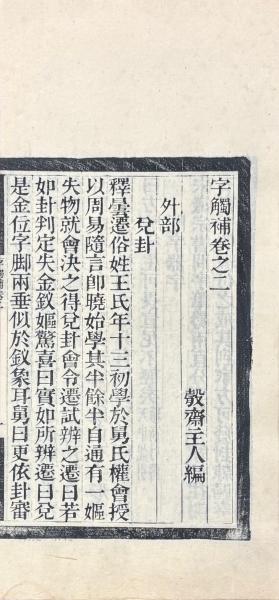 字觸補卷之二
㲄齋主人編
外部
兌卦
釋曇遷俗姓王氏年十三初學於舅氏權會授
以周易隨言卽曉始學其半餘半自通有一嫗
失物就會決之得兌卦會令遷試辨之遷曰若
如卦判定失金釵嫗驚喜曰實如所辨遷曰兌
是金位字脚兩垂似於釵象耳舅曰更依卦審